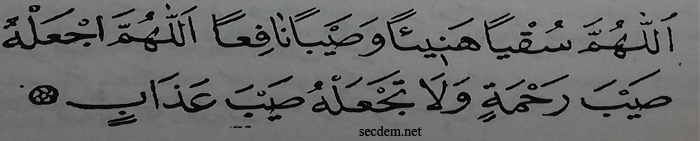 اَللّٰهُمَّ سُقْيًا هَنِيئًا وَصَيِّبًا نَافِعًا اَللّٰهُمَّ اجْعَلْهُ
صَيْبَ رَحْمَةٍ وَلَا تَجْعَلْهُ صَيْبَ عَذَابٍ
secdem.net